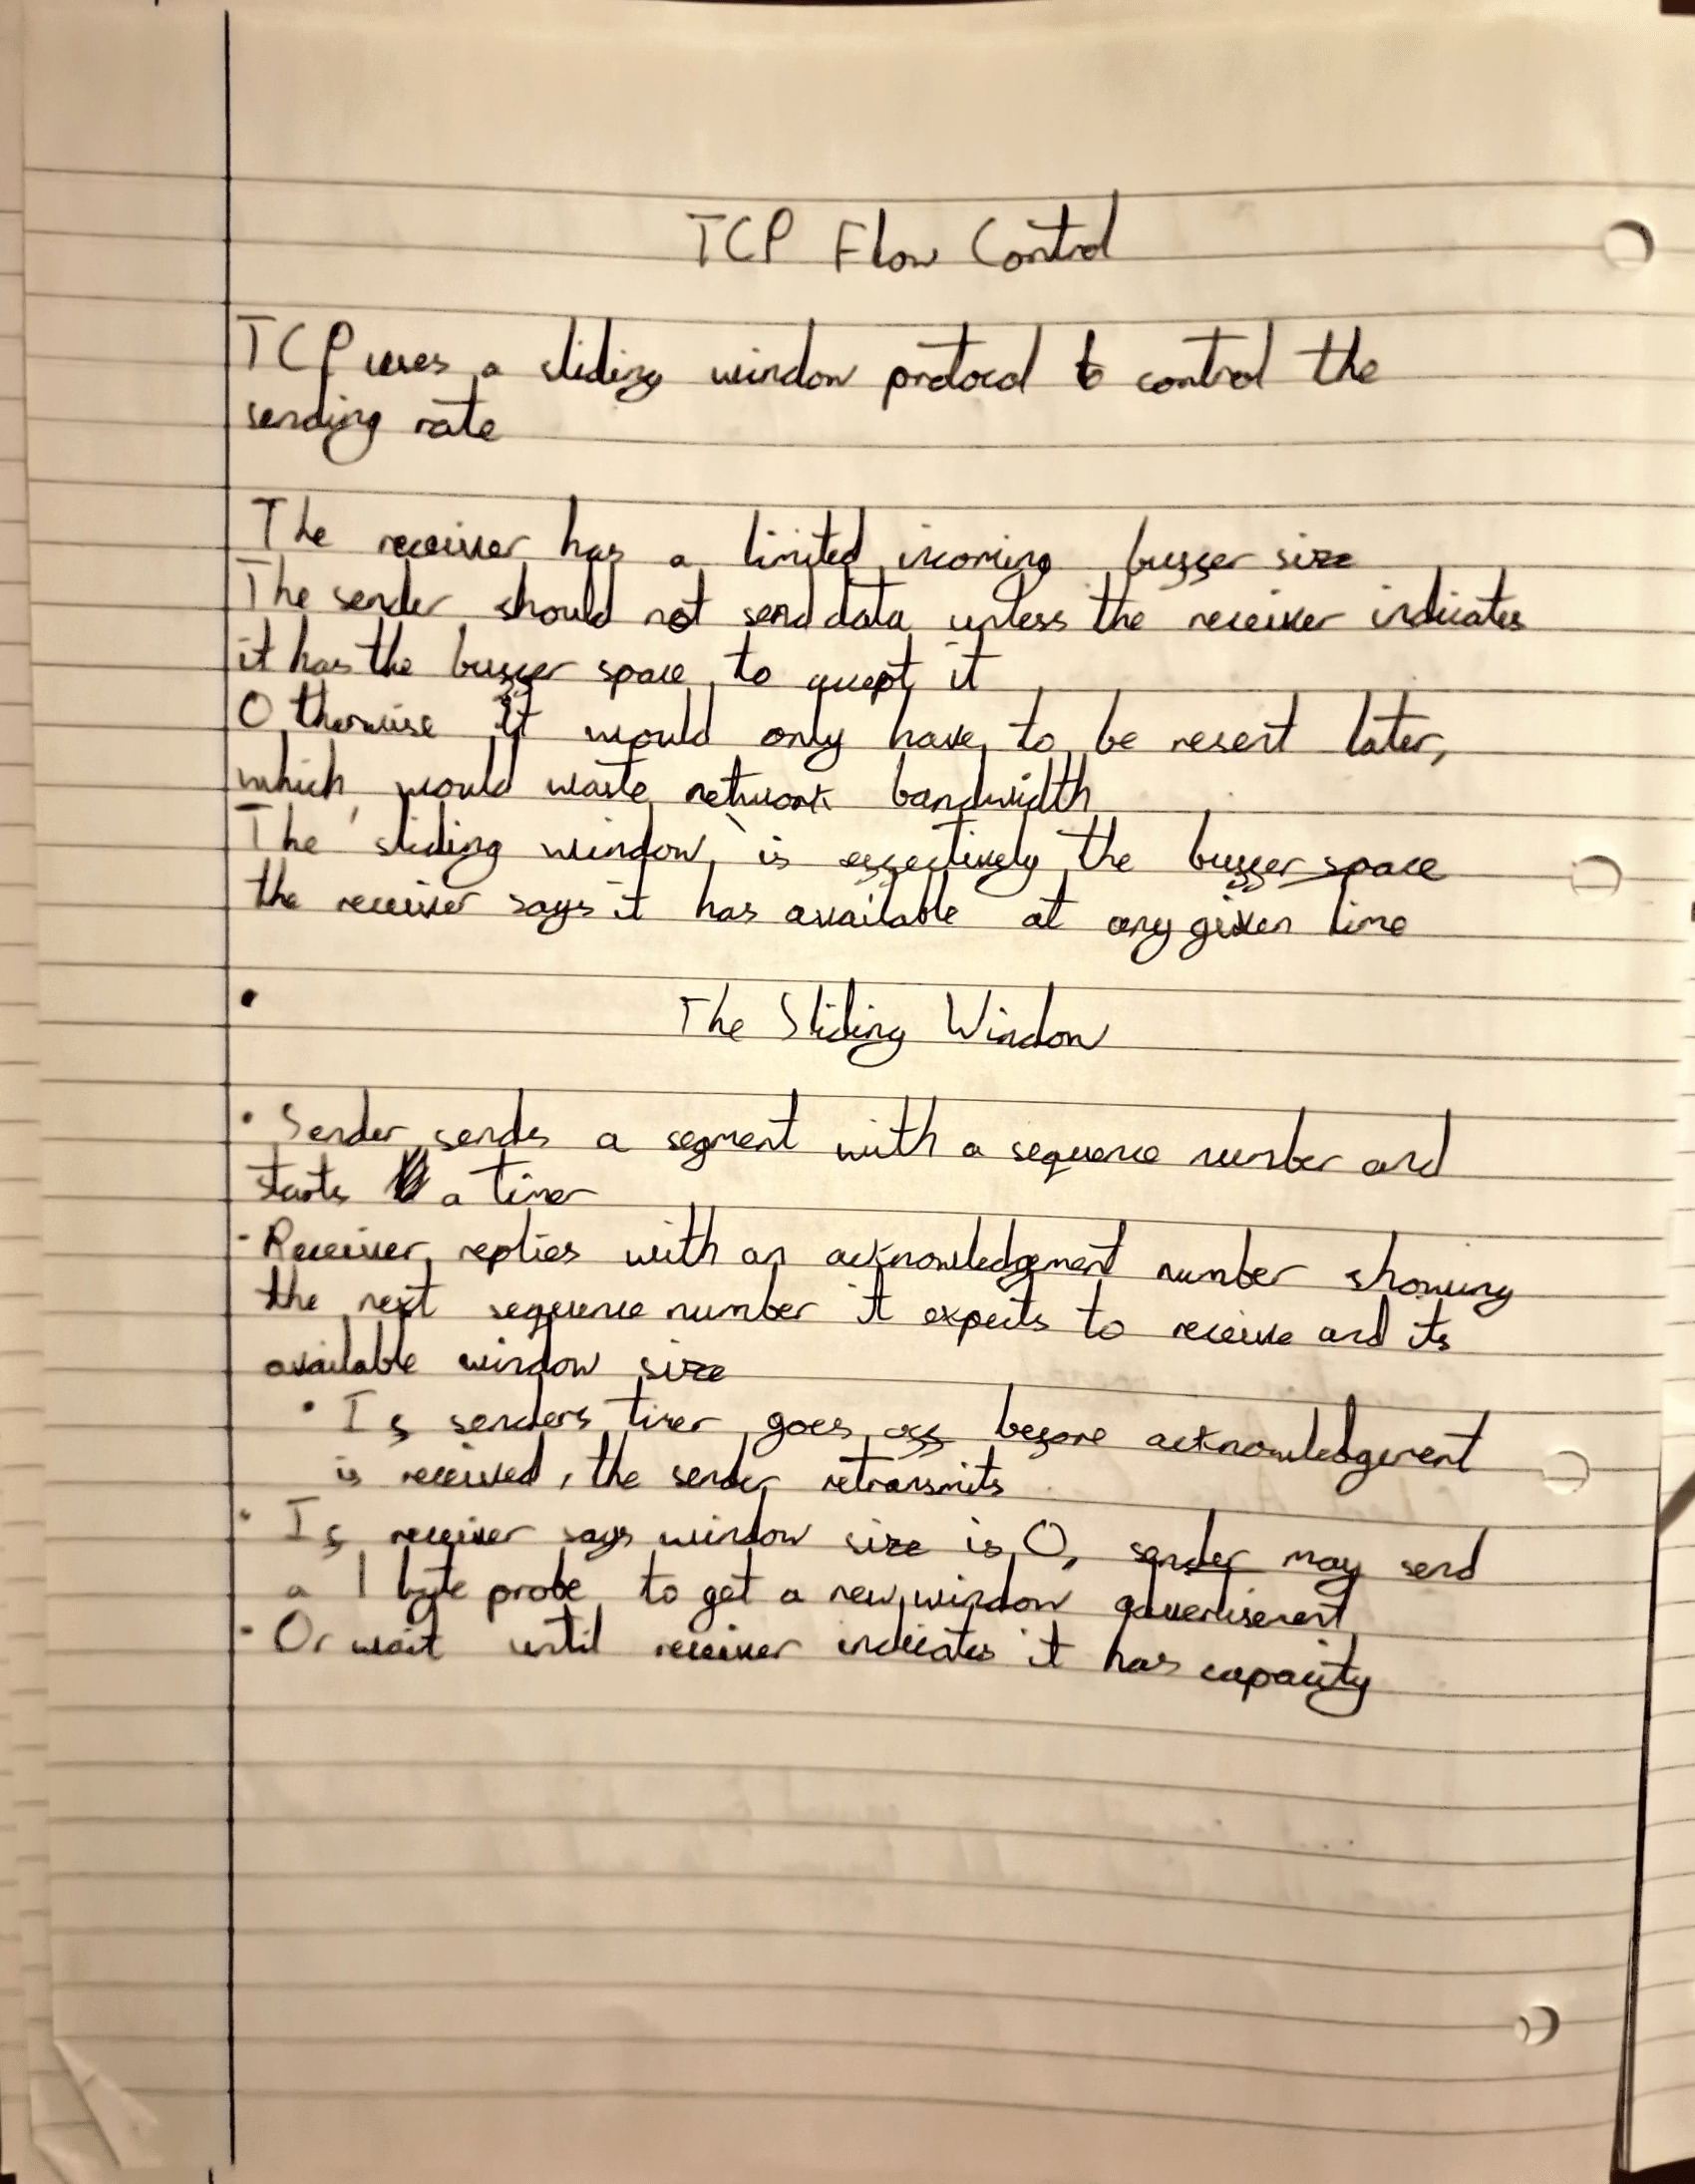 TCP Flow Control
TCP uses a sliding window protocol to control the
sending rate
The receiver has a limited incoming buffer size
The sender should not send data unless the receiver indicates
it has the buffer space to accept it
Otherwise it would only have to be resent later,
which would waste network bandwidth
The 'sliding window' is effectively the buffer space
the receiver says it has available at any given time
•
The Sliding Window
• Sender sends a segment with a sequence number and
starts a timer
- Receiver replies with an acknowledgement number showing
the next sequence number it expects to receive and its
available window size
• If senders timer goes off before acknowledgement
is received, the sender retransmits
• If receiver says window size is 0, sender may send
a 1 byte probe to get a new window advertisement
- Or wait until receiver indicates it has capacity